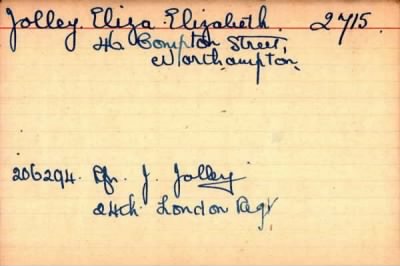 Jolley Eliza Elizabeth. 2715.
46 Compton Street,
Northampton.
206294. Rfn. J. Jolley
24th London Regt